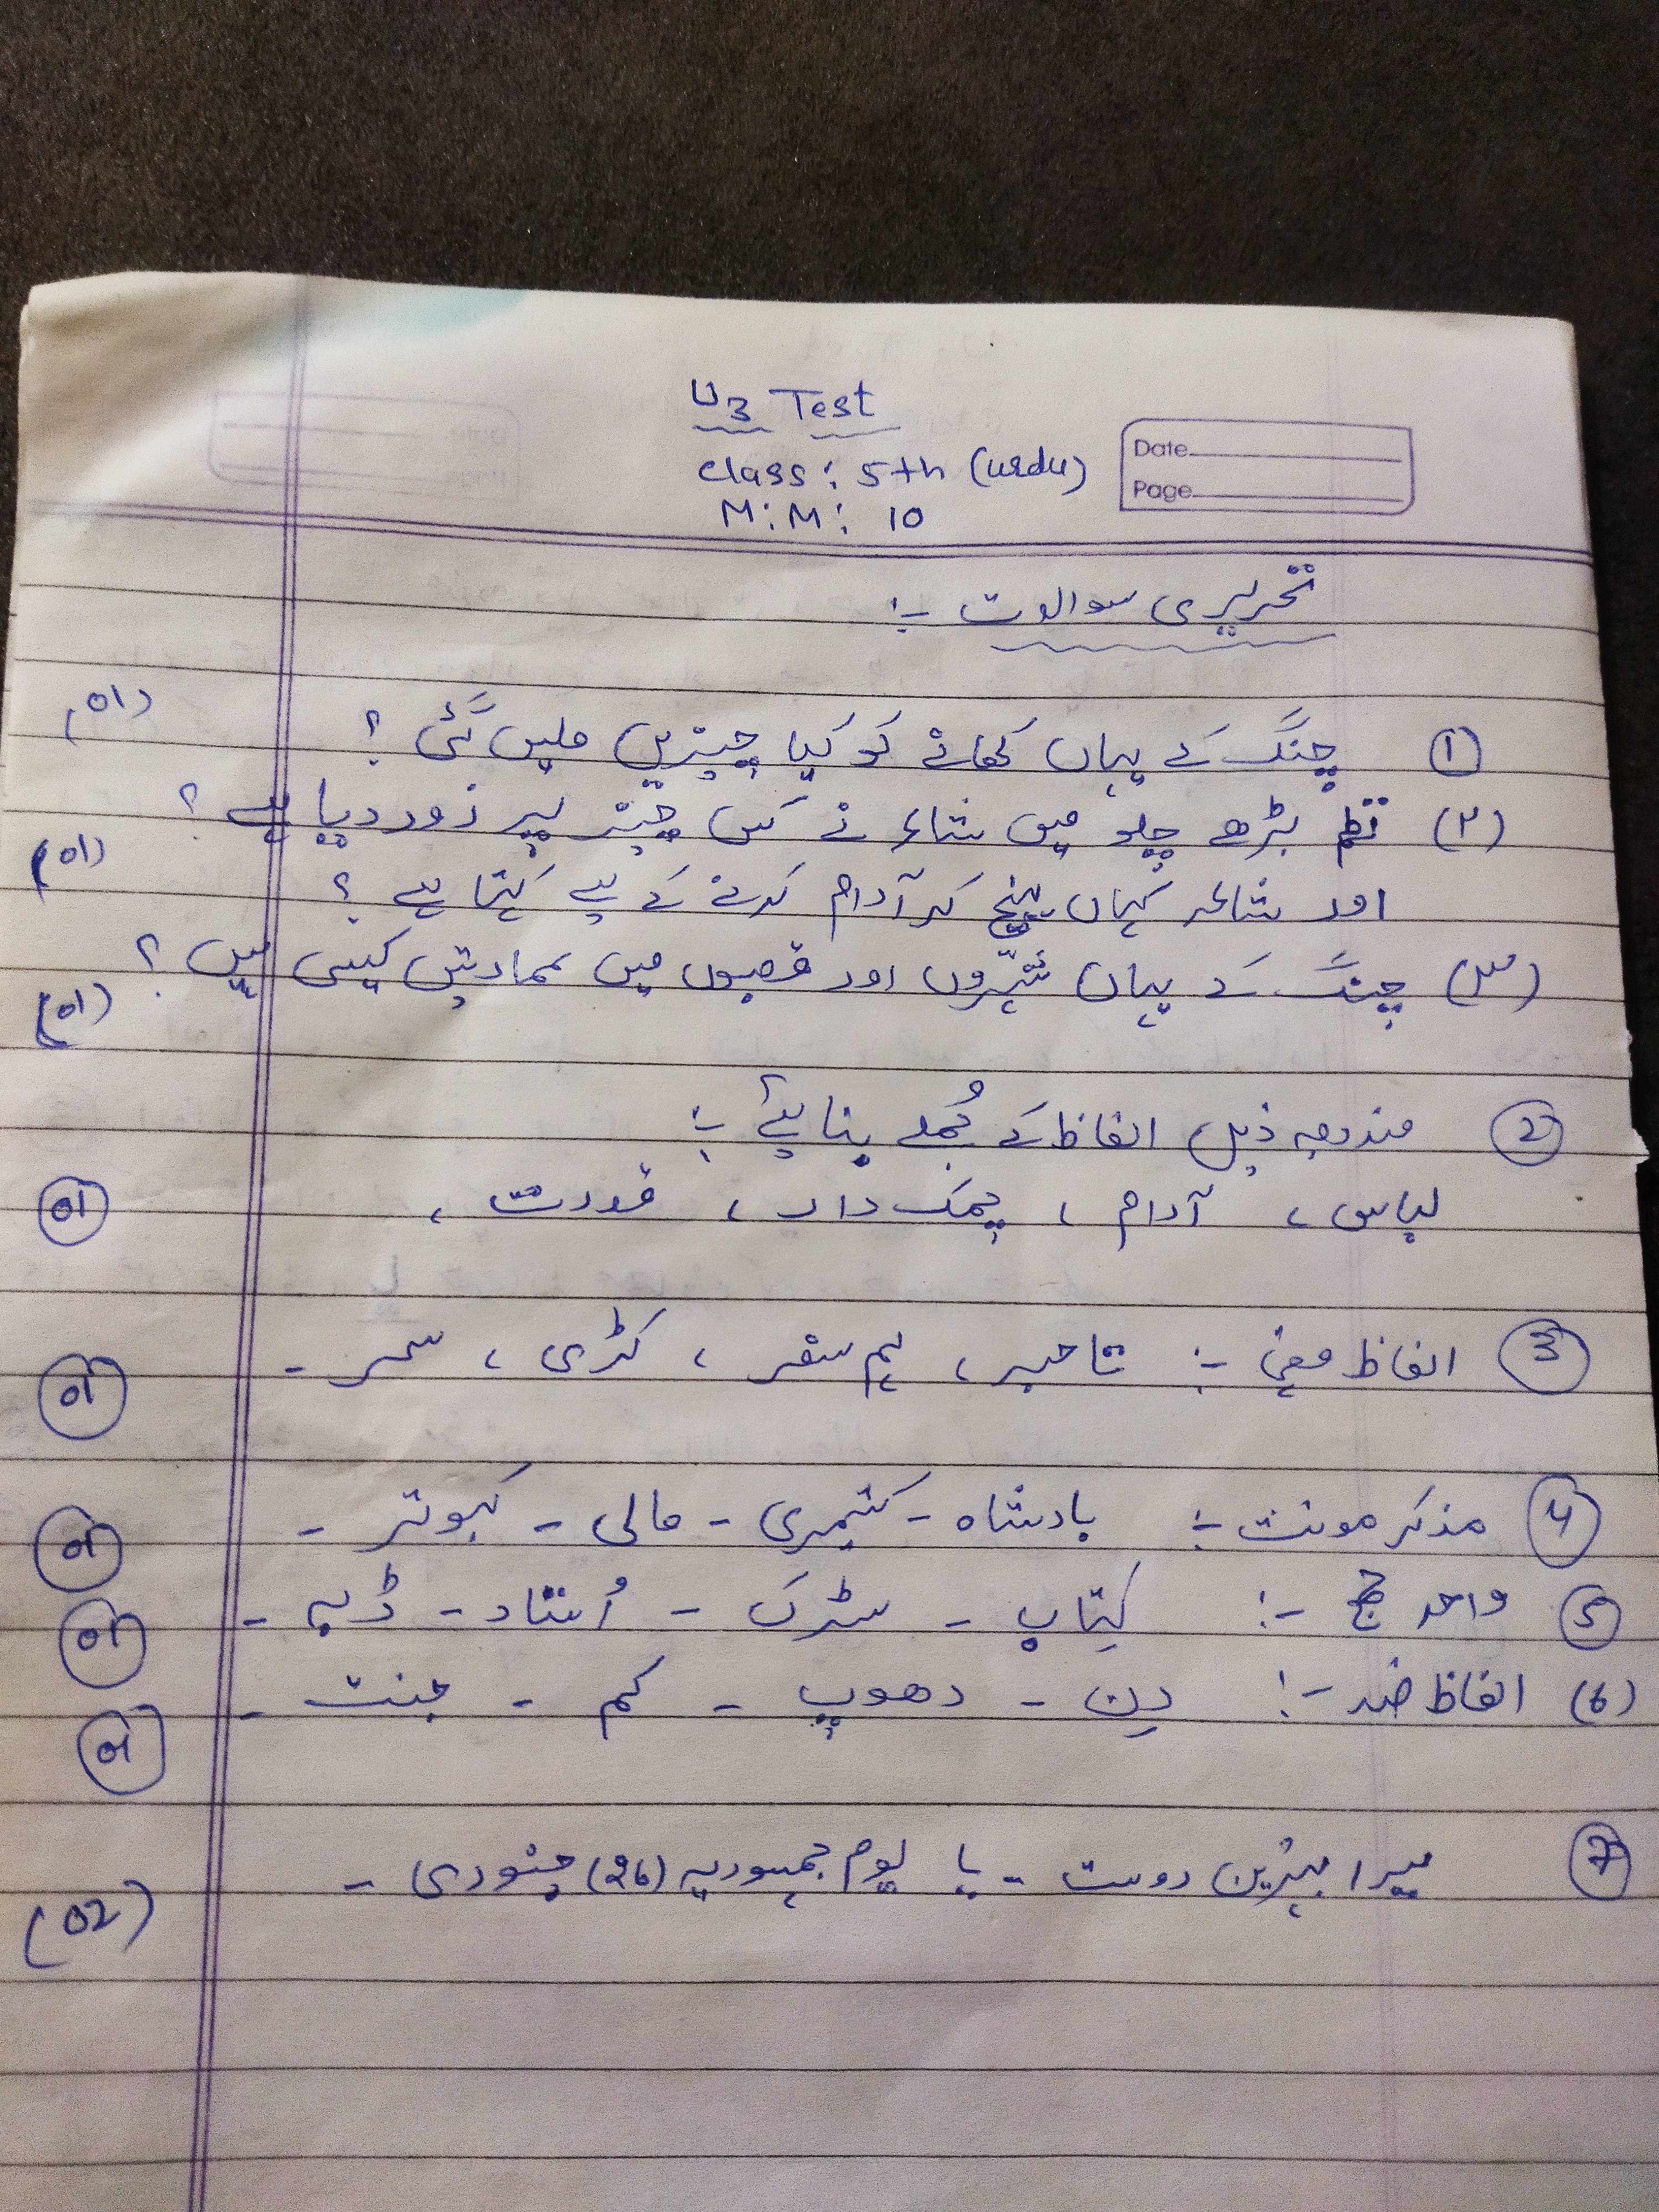 U3 Test
Class: 5th (Urdu)
M:M: 10
Date
Page
تحریری سوالات :-
① چنگ کے یہاں کھانے کو کیا چیزیں ملیں گئی ؟ (01)
(۲) نظم بڑھے چلو میں شاعر نے کس چیز پر زور دیا ہے ؟
اور شاعر کہاں پہنچ کر آرام کرنے کے لیے کہتا ہے ؟ (01)
(۳) چنگ کے یہاں شہروں اور قصبوں میں عمارتیں کیسی ہیں ؟ (01)
② مندرجہ ذیل الفاظ کے جُملے بنائیے :-
لباس ، آرام ، چمک دار ، قدرت ، 01
③ الفاظ معنی :- تاخیر ، ہم سفر ، کڑی ، سحر - 01
④ مذکر مونث :- بادشاہ - کشمیری - مالی - کبوتر - 01
⑤ واحد جمع :- کتاب - سڑک - اُستاد - ڈبہ - 01
(6) الفاظ ضد :- دن - دھوپ - کم - جنت - 01
⑦ میرا بہترین دوست - یا یوم جمہوریہ (26) جنوری - (02)